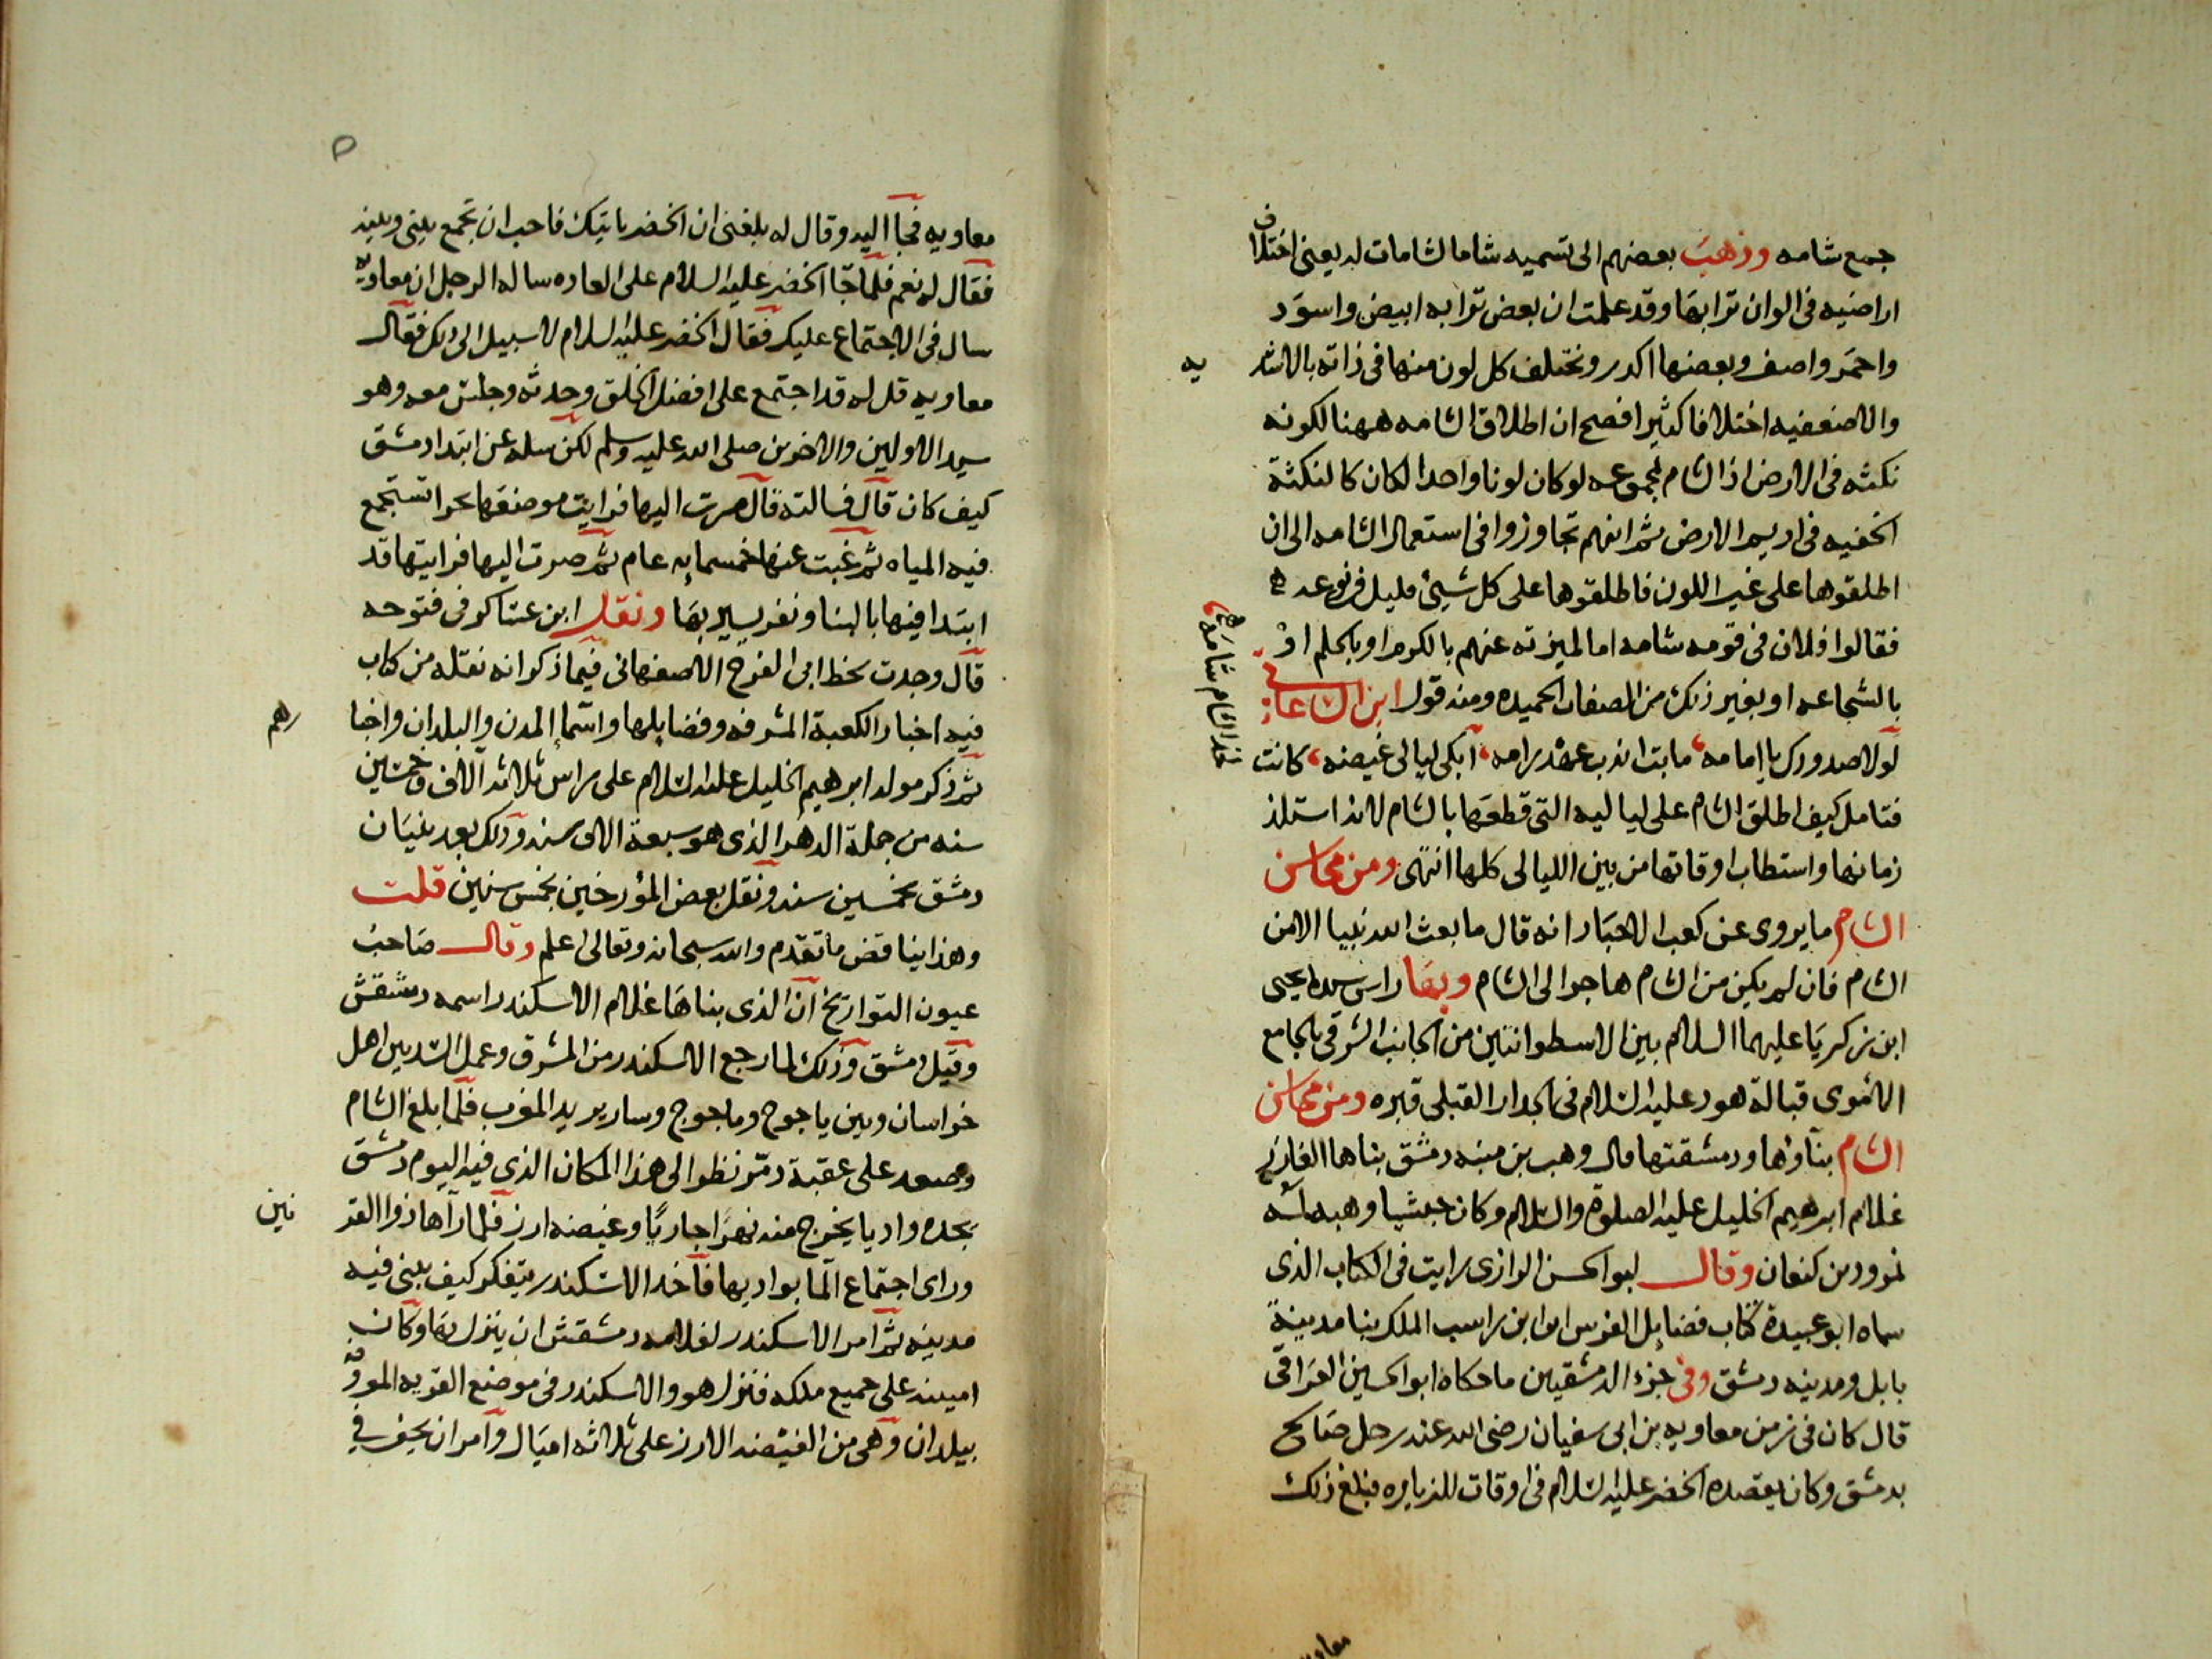 جمع شامه وذهب بعضهم الى تسميه شاما لشامات له يعنى اختلاف
اراضيه فى الوان ترابها وقد علمت ان بعض ترابه ابيض واسود
واحمر واصفر وبعضها اكدر ويختلف كل لون منها فى ذاته بالاشد يه
والاضعفيه اختلافا كثيرا فصح ان اطلاق الشامه ههنا لكونه
نكتته فى الارض اذ الشام مجموعه لو كان لونا واحدا لكان كالنكتة
الخفيه فى اديم الارض ثم انهم تجاوزوا فى استعمال الشامه الى ان
اطلقوها على غير اللون فاطلقوها على كل شيئ قليل فى نوعه
فقالوا فلان فى قومه شامه اما لميزته عنهم بالكرم او بالحلم او
بالشجاعه او بغير ذلك من الصفات الحميده ومنه قول ابن الساعاتى
لولا صدودك يا امامه ما بت اندب عهد رامه ابكى ليالى غيضه كانت
بخد الشام شامه
فتامل كيف اطلق الشام على لياليه التى قطعها بالشام لانه استلذ
زمانها واستطاب اوقاتها من بين الليالى كلها انتهى ومن محاسن
الشام ما يروى عن كعب الاحبار انه قال ما بعث الله نبيا الا من
الشام فان لم يكن من الشام هاجر الى الشام وبها راس سيدنا يحيى
ابن زكريا عليهما السلام بين الاسطوانتين من الجانب الشرقى بالجامع
الاموى قبالة هود عليه السلام فى الجدار القبلى قبره ومن محاسن
الشام بناؤها ودمشقتها قال وهب بن منبه دمشق بناها العازر
غلام ابرهيم الخليل عليه الصلوة والسلام وكان حبشيا وهبه له
نمرود بن كنعان وقال ابو الحسن الرازى رايت فى الكتاب الذى
سماه ابو عبيدة كتاب فضايل الفرس ان ابن راسب الملك بنا مدينة
بابل ومدينه دمشق وفى جزء الدمشقيين ما حكاه ابو الحسين العراقى
قال كان فى زمن معاويه بن ابى سفيان رضى الله عنه رجل صالح
بدمشق وكان يقصده الخضر عليه السلام فى اوقات للزياره فبلغ ذلك
معاويه
٥
معاويه فجاا اليه وقال له بلغنى ان الخضر ياتيك فاحب ان تجمع بينى وبينه
فقال له نعم فلما جاا الخضر عليه السلام على العاده ساله الرجل ان معاويه
سال فى الاجتماع عليك فقال الخضر عليه السلام لا سبيل الى ذلك فقال
معاويه قل له قد اجتمع على افضل الخلق وحدثه وجلس معه وهو
سيد الاولين والاخرين صلى الله عليه وسلم لكن سله عن ابتدا دمشق
كيف كان قال فسالته قال صرت اليها فرايت موضعها بحرا تستجمع
فيه المياه ثم غبت عنها خمسمايه عام ثم صرت اليها فرايتها قد
ابتدا فيها بالبنا ونفر يسير بها ونقل ابن عساكر فى فتوحه
قال وجدت بخط ابى الفرج الاصفهانى فيما ذكر انه نقله من كتاب
فيه اخبار الكعبة المشرفه وفضايلها واسما المدن والبلدان واخبا رهم
ثم ذكر مولد ابرهيم الخليل عليه السلام على راس ثلاثه آلاف وخمسين
سنه من جملة الدهر الذى هو سبعة الاف سنه وذلك بعد بنيان
دمشق بخمسين سنه ونقل بعض المؤرخين بخمس سنين قلت
وهذا يناقض ما تقدم والله سبحانه وتعالى اعلم وقال صاحب
عيون التواريخ ان الذى بناها غلام الاسكندر اسمه دمشقش
وقيل دمشق وذلك لما رجع الاسكندر من المشرق وعمل السد بين اهل
خراسان وبين ياجوج وماجوج وسار يريد المغرب فلما بلغ الشام
وصعد على عقبة دمر نظر الى هذا المكان الذى فيه اليوم دمشق
بحده واديا يخرج منه نهرا جاريا وغيضه ارز فلما رآها ذوا القر نين
وراى اجتماع الما بواديها فاخذ الاسكندر يتفكر كيف يبنى فيه
مدينه ثم امر الاسكندر لغلامه دمشقش ان ينزل بها وكان
امينه على جميع ملكه فنزل هو والاسكندر فى موضع القريه المعروفه
بيلدان وهى من الغيضه الارز على ثلاثه اميال وامر ان يحفر فى